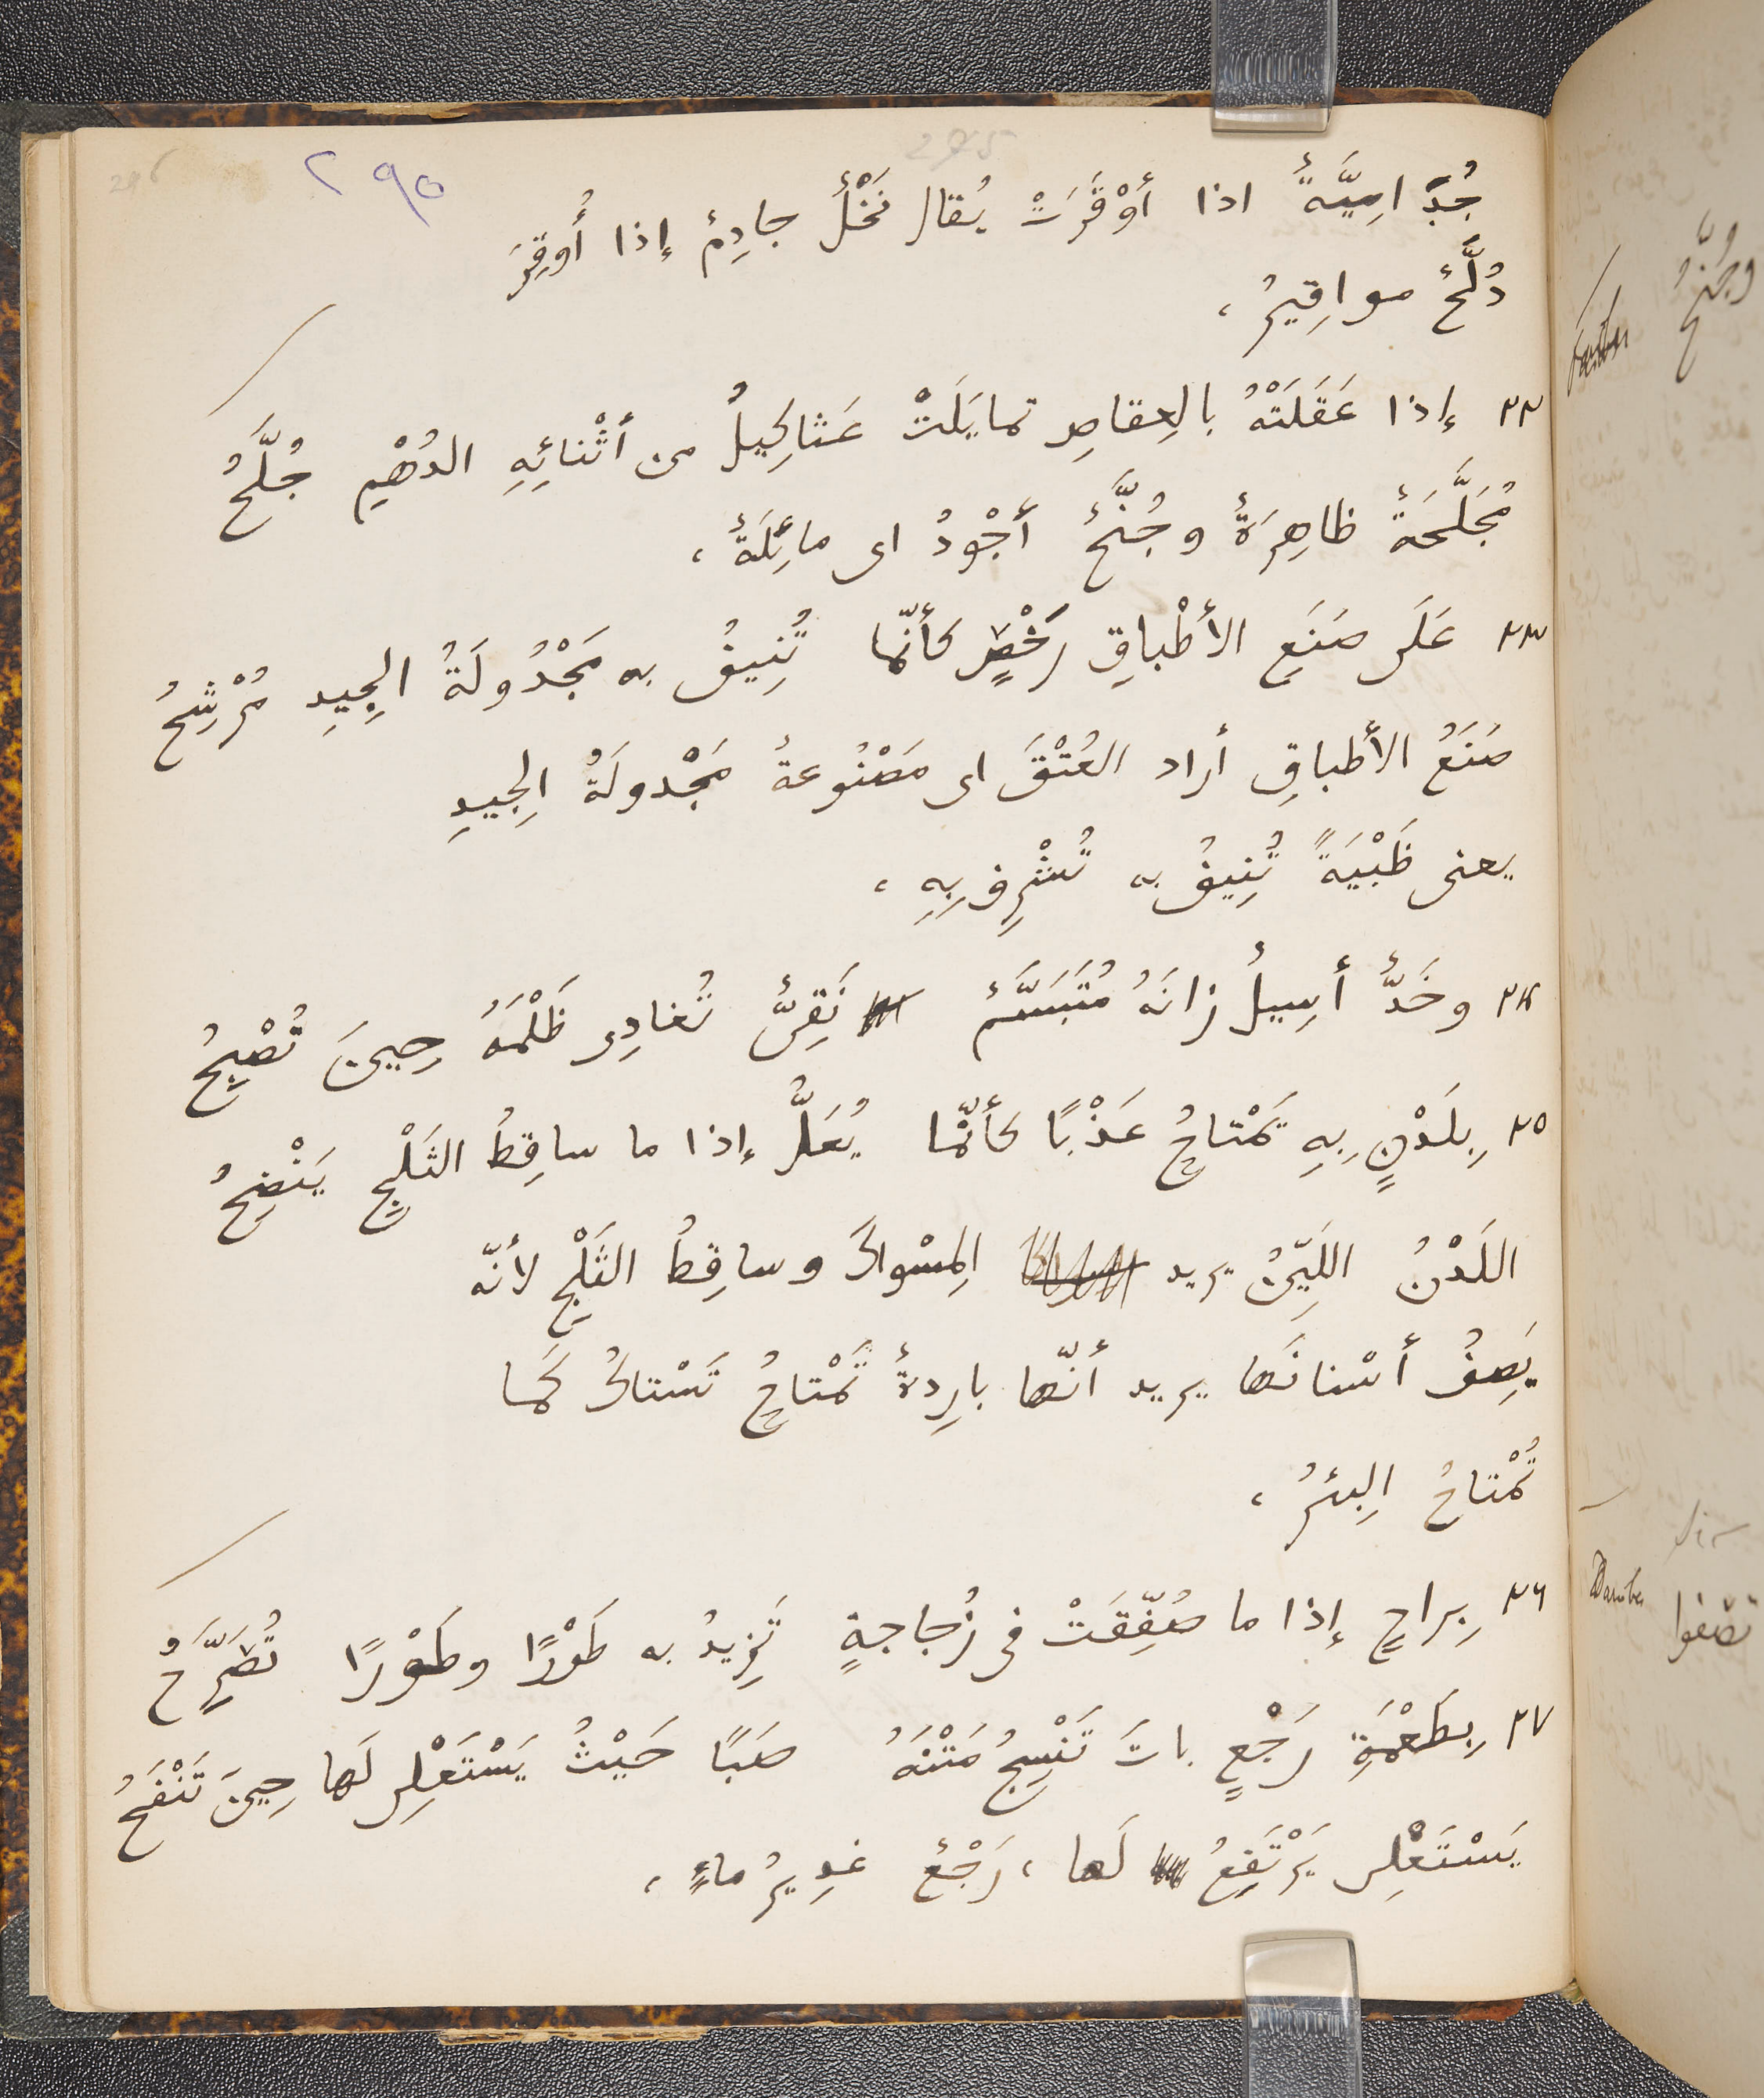 ٢٩٥
جُدَّامِيَّةٌ اذا أَوْقَرَتْ يُقال نَخْلٌ جادِمٌ إذا أُوقِرَ
دُلَّحٌ مواقِيرُ،
٢٢ إذا عَقَلَتْهُ بالعِقاصِ تمايَلَتْ عَثاكِيلُ من أثْنائِهِ الدُهْمِ جُلَّحُ
مُجَلَّحَةٌ ظاهِرَةٌ وجُنَّحٌ أجْوَدُ اى مائِلَةٌ،
٢٣ عَلَى صَنَعِ الأطْباقِ رَخْصٍ كأنّما تُنِيفُ به مَجْدُولَةُ الجِيدِ مُرْشِحُ
صَنَعُ الأطباقِ أراد العُنْقَ اى مَصْنُوعةٌ مَجْدولَةُ الجِيدِ
يعنى ظَبْيَةً تُنِيفُ به تُشْرِف بِهِ،
٢٤ وخَدٌّ أسِيلٌ زانَهُ مُتَبَسَّمٌ نَقِىٌّ تُغادِى ظَلْمَهُ حِينَ تُصْبِحُ
٢٥ بِلَدْنٍ بِهِ تَمْتاحُ عَذْبًا كأنّما يُعَلُّ إذا ما ساقِطُ الثَلْجِ يَنْضِحُ
اللَدْنُ اللَيِّنُ يريد المِسْواكَ وساقِطُ الثَلْجِ لأنّه
يَصِفُ أسْنانَها يريد أنّها بارِدةٌ تَمْتاحُ تَسْتاكُ كَما
تُمْتاحُ البِئرُ،
٢٦ بِراحٍ إذا ما صُفِّقَتْ فى زُجاجةٍ تَزِيدُ به طَوْرًا وطَوْرًا تُصَرِّحُ
٢٧ بِطَعْمَةِ رَجْعٍ باتَ تَنْسِجُ مَتْنَهُ صَبًا حَيْثُ يَسْتَعْلِى لَها حِينَ تَنْفَحُ
يَسْتَعْلِى يَرْتَفِعُ لَها، رَجْعٌ غدِيرُ ماءٍ،
وجُنَّحُ